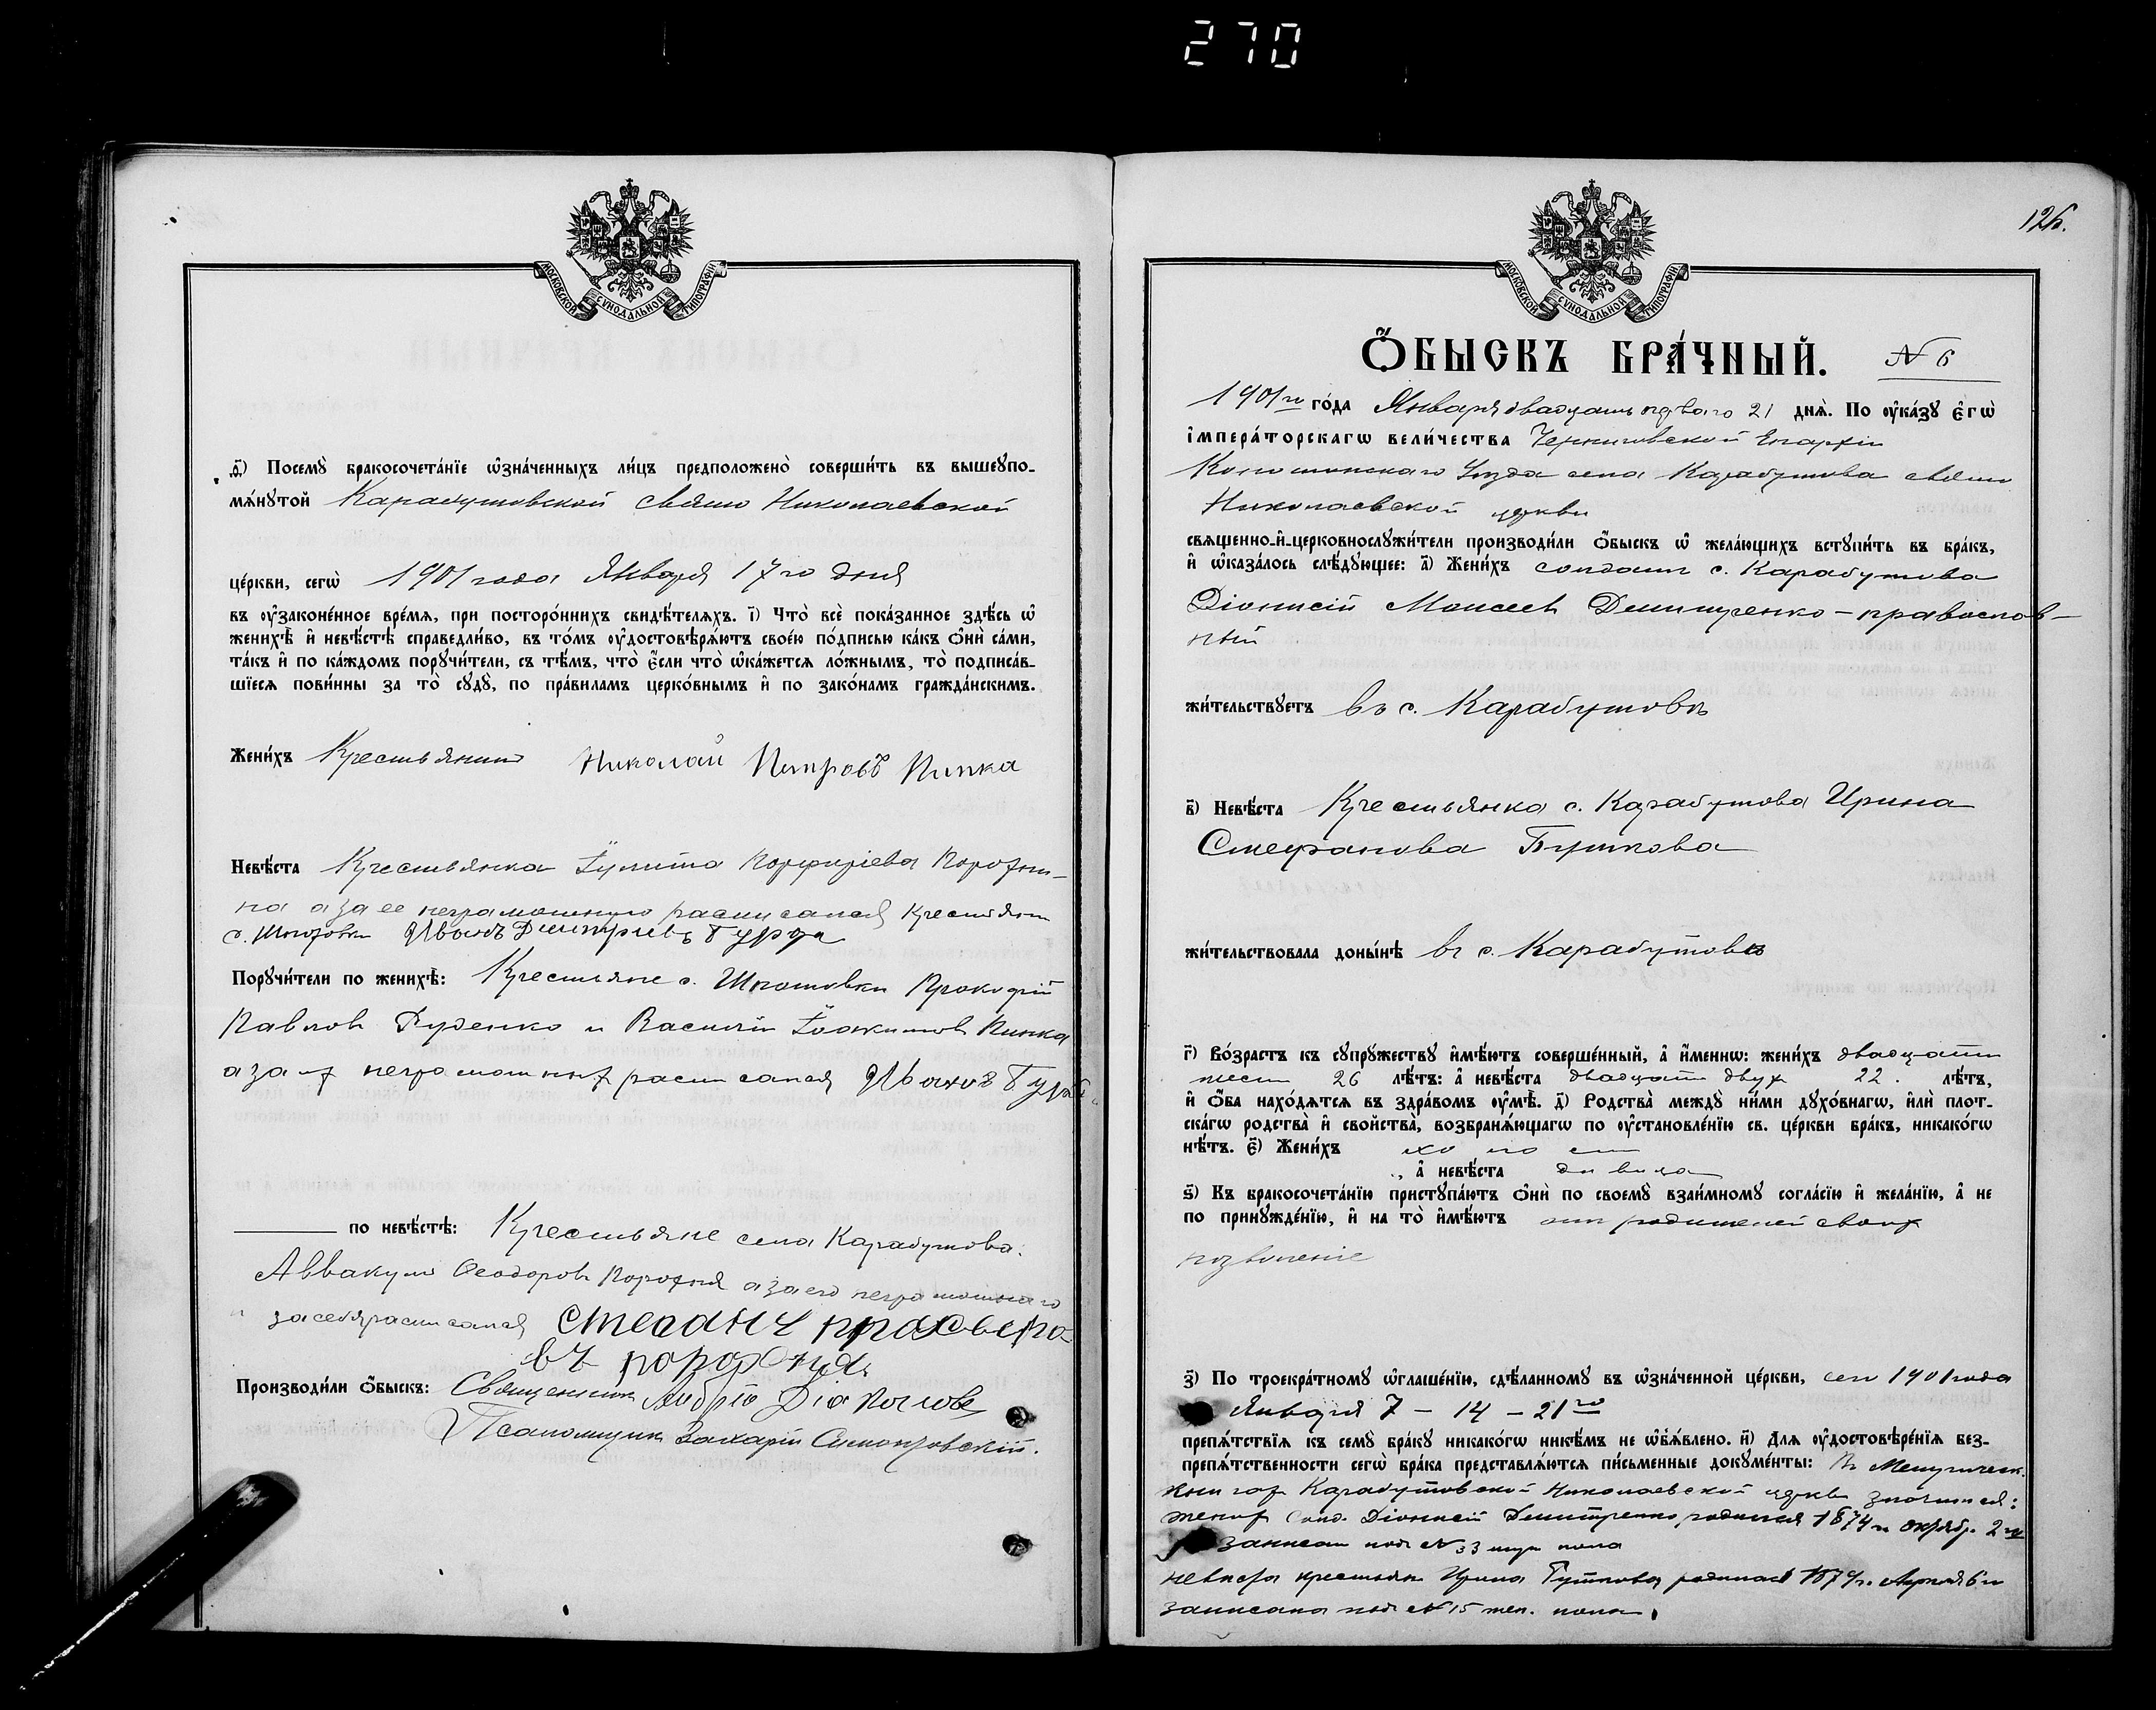 270
МОСКОВСКОЙ СѴНОДАЛЬНОЙ ТИПОГРАФІИ
Ѳ҃) Посемꙋ̀ бракосочета́нїе ѡ҆зна́ченныхъ ли́цъ предположено̀ соверши́ть въ вышеꙋпо-
мѧ́нꙋтой Карабутовской свято Николаевской
це́ркви, сегѡ̀ 1901 года Января 17го дня
въ ᲂу҆законе́нное вре́мѧ, при посторо́ннихъ свидѣ́телѧхъ. І҃) Что̀ всѐ пока́занное здѣ́сь ѡ҆
женихѣ̀ и҆ невѣ́стѣ справедли́во, въ то́мъ ᲂу҆достовѣрѧ́ютъ свое́ю по́дписью ка́къ ѻ҆нѝ са́ми,
та́къ и҆ по ка́ждомъ порꙋчи́тели, съ тѣ́мъ, что̀ є҆́сли что̀ ѡ҆ка́жетсѧ ло́жнымъ, то̀ подписа́в-
шїесѧ пови́нны за то̀ сꙋдꙋ̀, по пра́виламъ церко́внымъ и҆ по зако́намъ гражда́нскимъ.
Жени́хъ Крестьянинъ Николай Петровъ Пипка
Невѣ́ста Крестьянка Іулита Порфиріева Порохня-
на а за ее неграмотную расписался Крестьян
с. Иванъ Дмитріевъ Гурба
Порꙋчи́тели по женихѣ̀: Крестьяне с. Шпотовки Прокофій
Павлов Руденко и Василій Іоакимов Пипка
а за их неграмотных расписался Иванъ Гурба
по невѣ́стѣ: Крестьяне села Карабутова:
Аввакум Феодоров Порохня а за его неграмотнаго
и за себя расписался Стефанъ
въ порохня
Производи́ли ѻ҆́быскъ: Священник Андрей Діаконов
Псаломщик Захарій
126.
МОСКОВСКОЙ СѴНОДАЛЬНОЙ ТИПОГРАФІИ
Ѻ҆́БЫСКЪ БРА́ЧНЫЙ. № 6
1901го го́да Января двадцать перваго 21 днѧ̀. По ᲂу҆ка́зꙋ є҆гѡ̀
і҆мпера́торскагѡ вели́чества Черниговской Епархіи
Конотопскаго Уезда села Карабутова свято
Николаевской церкви
свѧщенно-и҆-церковнослꙋжи́тели производи́ли ѻ҆́быскъ ѡ҆ жела́ющихъ встꙋпи́ть въ бра́къ,
и҆ ѡ҆каза́лось слѣ́дꙋющее: А҃) Жени́хъ солдат с. Карабутова
Діонисій Моисеев Дмитренко - православ-
ный
жи́тельствꙋетъ въ с. Карабутовѣ
В҃) Невѣ́ста Крестьянка с. Карабутова Ирина
Стефанова Гуткова
жи́тельствовала доны́нѣ въ с. Карабутовѣ
Г҃) Во́зрастъ къ сꙋпрꙋ́жествꙋ и҆мѣ́ютъ соверше́нный, а҆ и҆́меннѡ: жени́хъ двадцати
шести 26 лѣ́тъ: а҆ невѣ́ста двадцати двух 22. лѣ́тъ,
и҆ ѻ҆́ба нахо́дѧтсѧ въ здра́вомъ ᲂу҆мѣ̀. Д҃) Родства̀ междꙋ̀ ни́ми дꙋхо́внагѡ, и҆лѝ плот-
ска́гѡ родства̀ и҆ сво́йства, возбранѧ́ющагѡ по ᲂу҆становле́нїю св. це́ркви бра́къ, никако́гѡ
нѣ́тъ. Е҃) Жени́хъ холост
, а҆ невѣ́ста девица
Ѕ҃) Къ бракосочета́нїю пристꙋпа́ютъ ѻ҆нѝ по своемꙋ̀ взаи́мномꙋ согла́сїю и҆ жела́нїю, а҆ не
по принꙋжде́нїю, и҆ на то̀ и҆мѣ́ютъ от родителей своих
позволеніе
З҃) По троекра́тномꙋ ѡ҆глаше́нїю, сдѣ́ланномꙋ въ ѡ҆зна́ченной це́ркви, сего 1901 года
Января 7 - 14 - 21го
препѧ́тствїѧ къ семꙋ̀ бра́кꙋ никако́гѡ никѣ́мъ не ѡ҆б̾ѧ́влено. И҃) Длѧ ᲂу҆достовѣре́нїѧ без-
препѧ́тственности сегѡ̀ бра́ка представлѧ́ютсѧ пи́сьменные докꙋме́нты: Въ Метрическ.
книгах Карабутовской Николаевской церкви значится:
жених солд. Діонисій Дмитренко родился 1874 г. октябр. 2 го
записан под № 33 муж. пола
невеста крестьян. Ирина Гуткова родилась 1879 г. Апреля 6 го
записана под № 15 жен. пола.